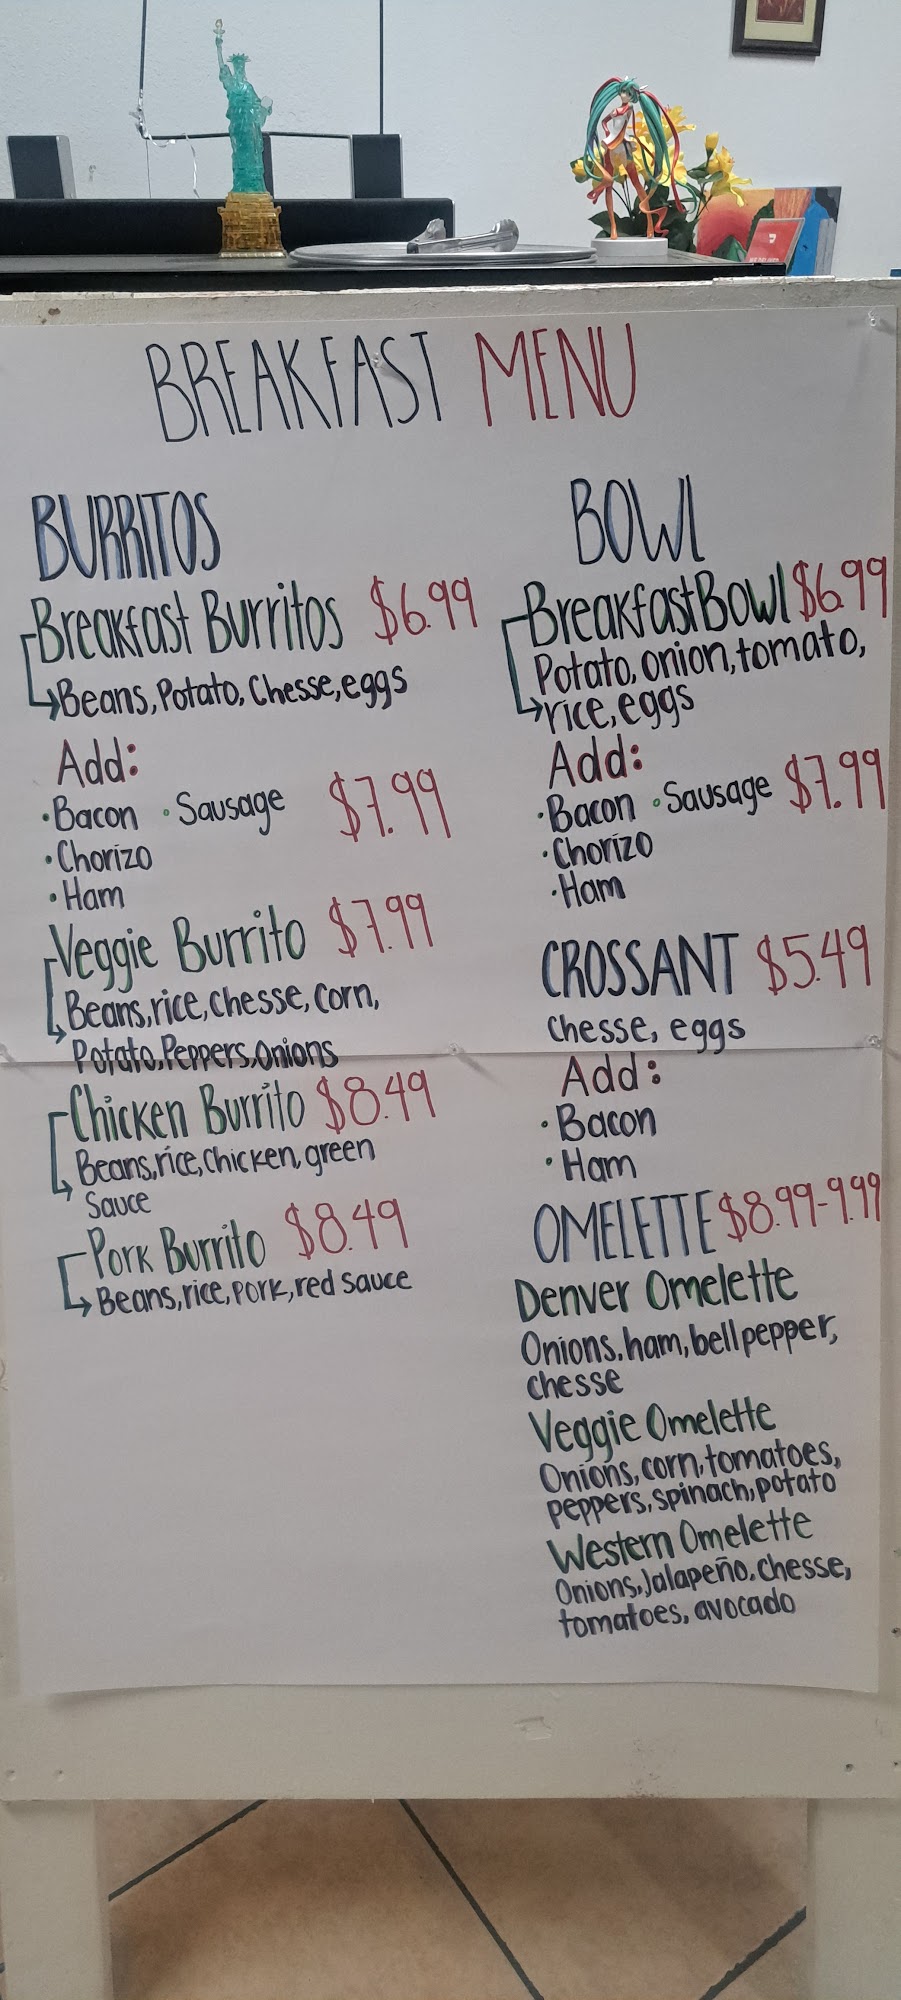 BREAKFAST MENU
BURRITOS
Breakfast Burritos $6.99
Beans, Potato, Chesse, eggs
Add:
·Bacon ·Sausage $7.99
·Chorizo
·Ham
Veggie Burrito $7.99
Beans, rice, chesse, corn,
Potato, Peppers, Onions
Chicken Burrito $8.49
Beans, rice, Chicken, green
Sauce
Pork Burrito $8.49
Beans, rice, pork, red sauce
BOWl
Breakfast Bowl $6.99
Potato, onion, tomato,
rice, eggs
Add:
·Bacon ·Sausage $7.99
·Chorizo
·Ham
CROSSANT $5.49
Chesse, eggs
Add:
·Bacon
·Ham
OMELETTE $8.99-9.99
Denver Omelette
Onions, ham, bell pepper,
chesse
Veggie Omelette
Onions, corn, tomatoes,
peppers, spinach, potato
Western Omelette
Onions, Jalapeño, Chesse,
tomatoes, avocado